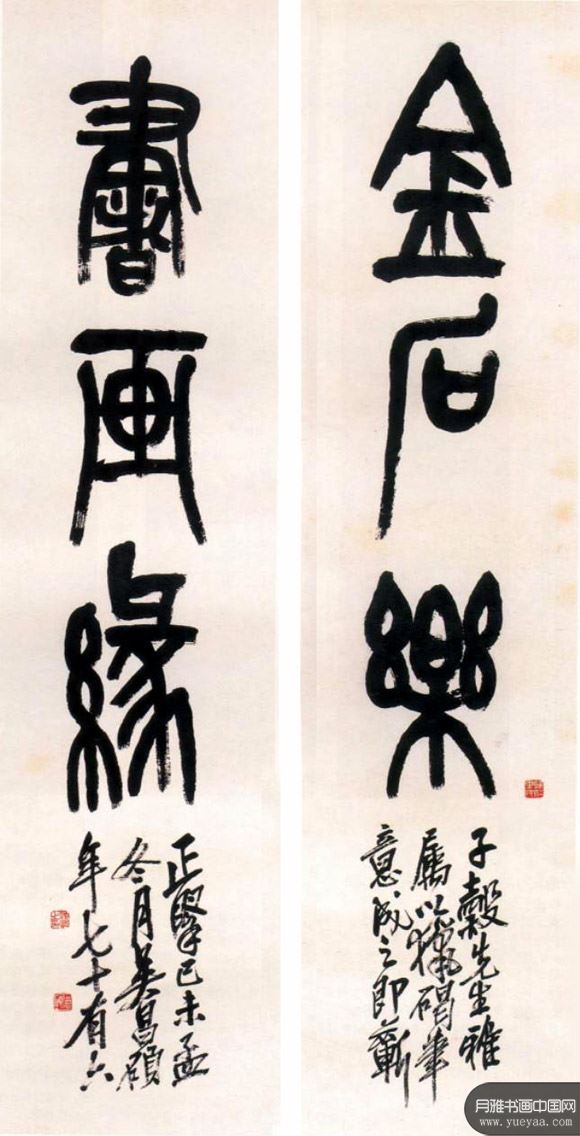 金石樂
子穀先生雅
屬以獵碣筆
意成之即蘄
書画緣
正擘己未孟
冬月吴昌碩
年七十有六
月雅书画中国网
www.yueyaa.com